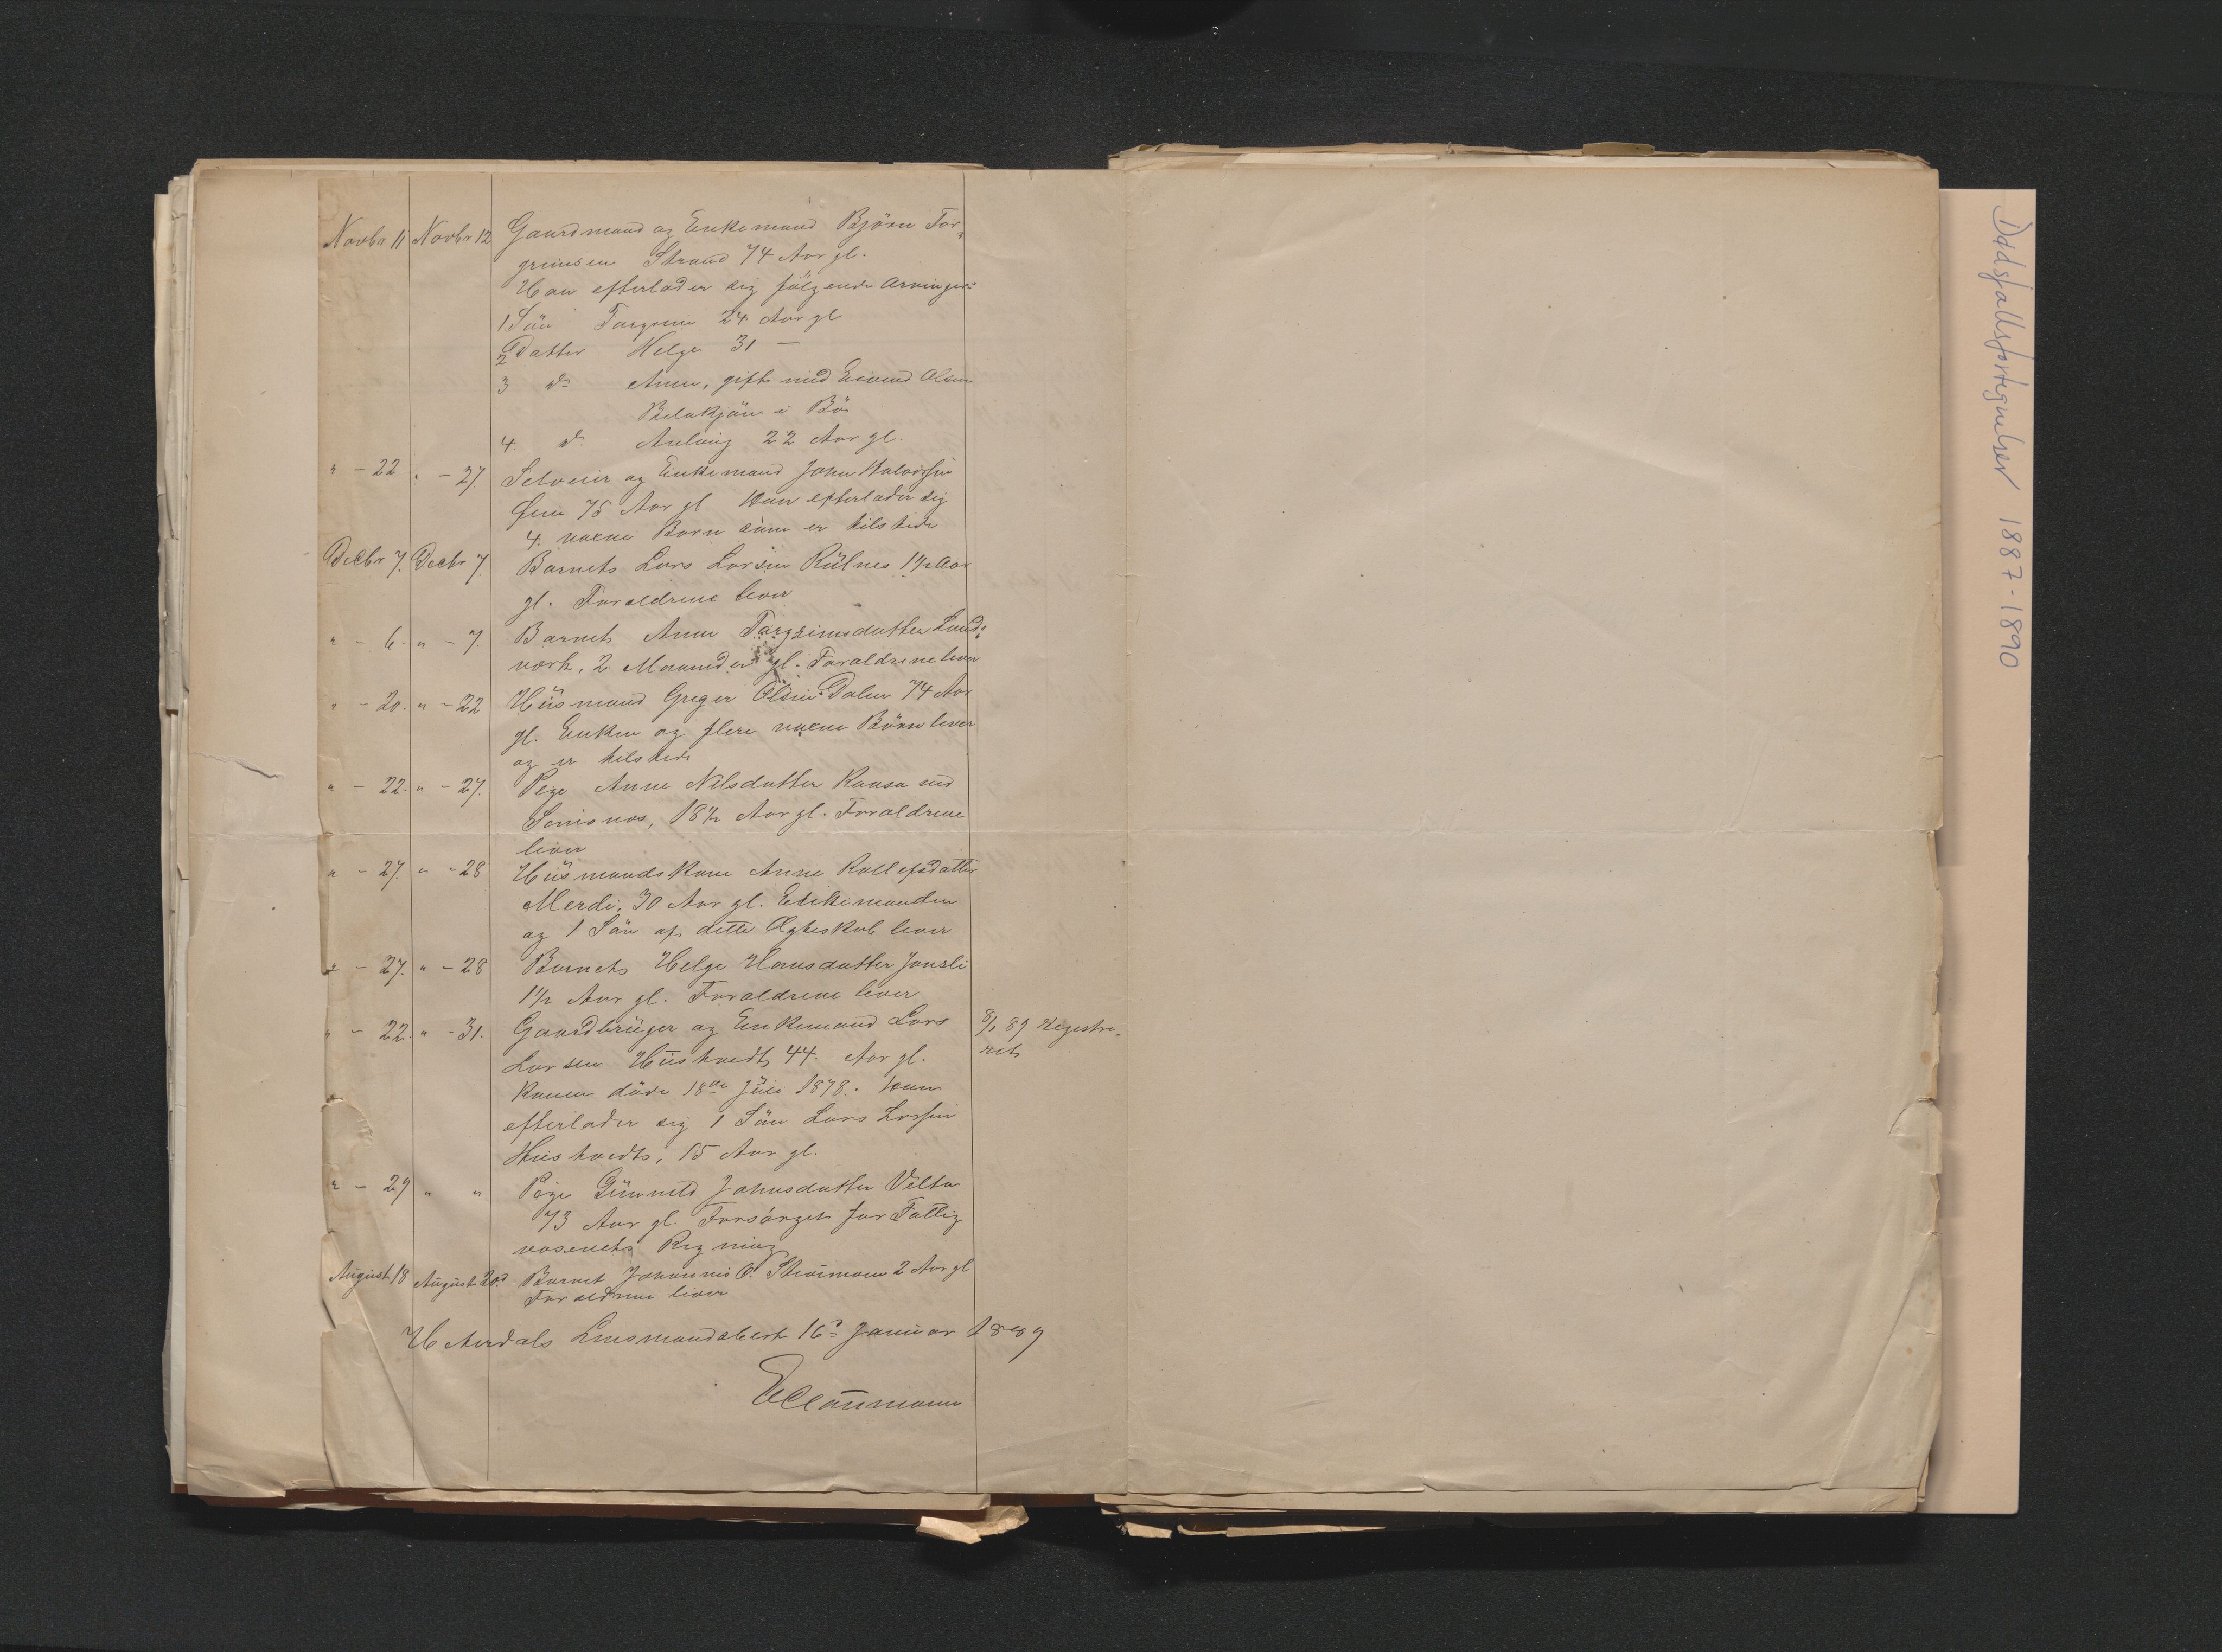 Novbr 11 Novbr 12 Gaardmand og Enkemand Björn Tor-
grimsen Strand 74 Aar gl.
Han efterlader sig fölgende Arvinger:
1 Sön Torgrim 24 Aar gl
2 Datter Helge 31 —
3 do Anne, gift med Eivind Olsen
i Bö
4. do Anlaug 22 Aar gl.
" - 22 " - 27 Selveier og Enkemand John Halvorsen
75 Aar gl Han efterlader sig
4. voxne Born som er tilstede
Decbr 7. Decbr 7. Barnet Lars Larsen Rülnes 1½ Aar
gl. Foraldrene lever
" - 6. " - 7. Barnet Anne Torgrimsdatter Land-
verk, 2 Maaneder gl. Foraldrene lever
" - 20. " - 22 Hüsmand Greger Olsen Dalen 74 Aar
gl. Enken og flere voxne Börn lever
og er tilstede
" - 22. " - 27. Pige Anne Nilsdatter Kaasa ved
18½ Aar gl. Foraldrene
lever
" - 27. " - 28 Hüsmandskone Anne Rollefsdatter
Merdi, 30 Aar gl. Enkemanden
og 1 Sön af dette Ægteskab lever
" - 27. " - 28 Barnet Helge Hansdatter Jonsli
1½ Aar gl. Foraldrene lever
" - 22. " - 31. Gaardbrüger og Enkemand Lars 8/1 89 Registre-
Larsen Hüstvedt 44. Aar gl. ret
Konen döde 18de Jüli 1878. Han
efterlader sig 1 Sön Lars Larsen
Hüstvedt, 15 Aar gl.
" - 29 " " Pige Günneld Johnsdatter Velta
73 Aar gl. Forsörget for Fattig
væsenets Regning
August 18 August 20d Barnet Johannes O. 2 Aar gl
Foraldrene lever
Lensmandsbest 16d Januar 1889
Claumann
Dødsfallsfortegnelser 1887-1890